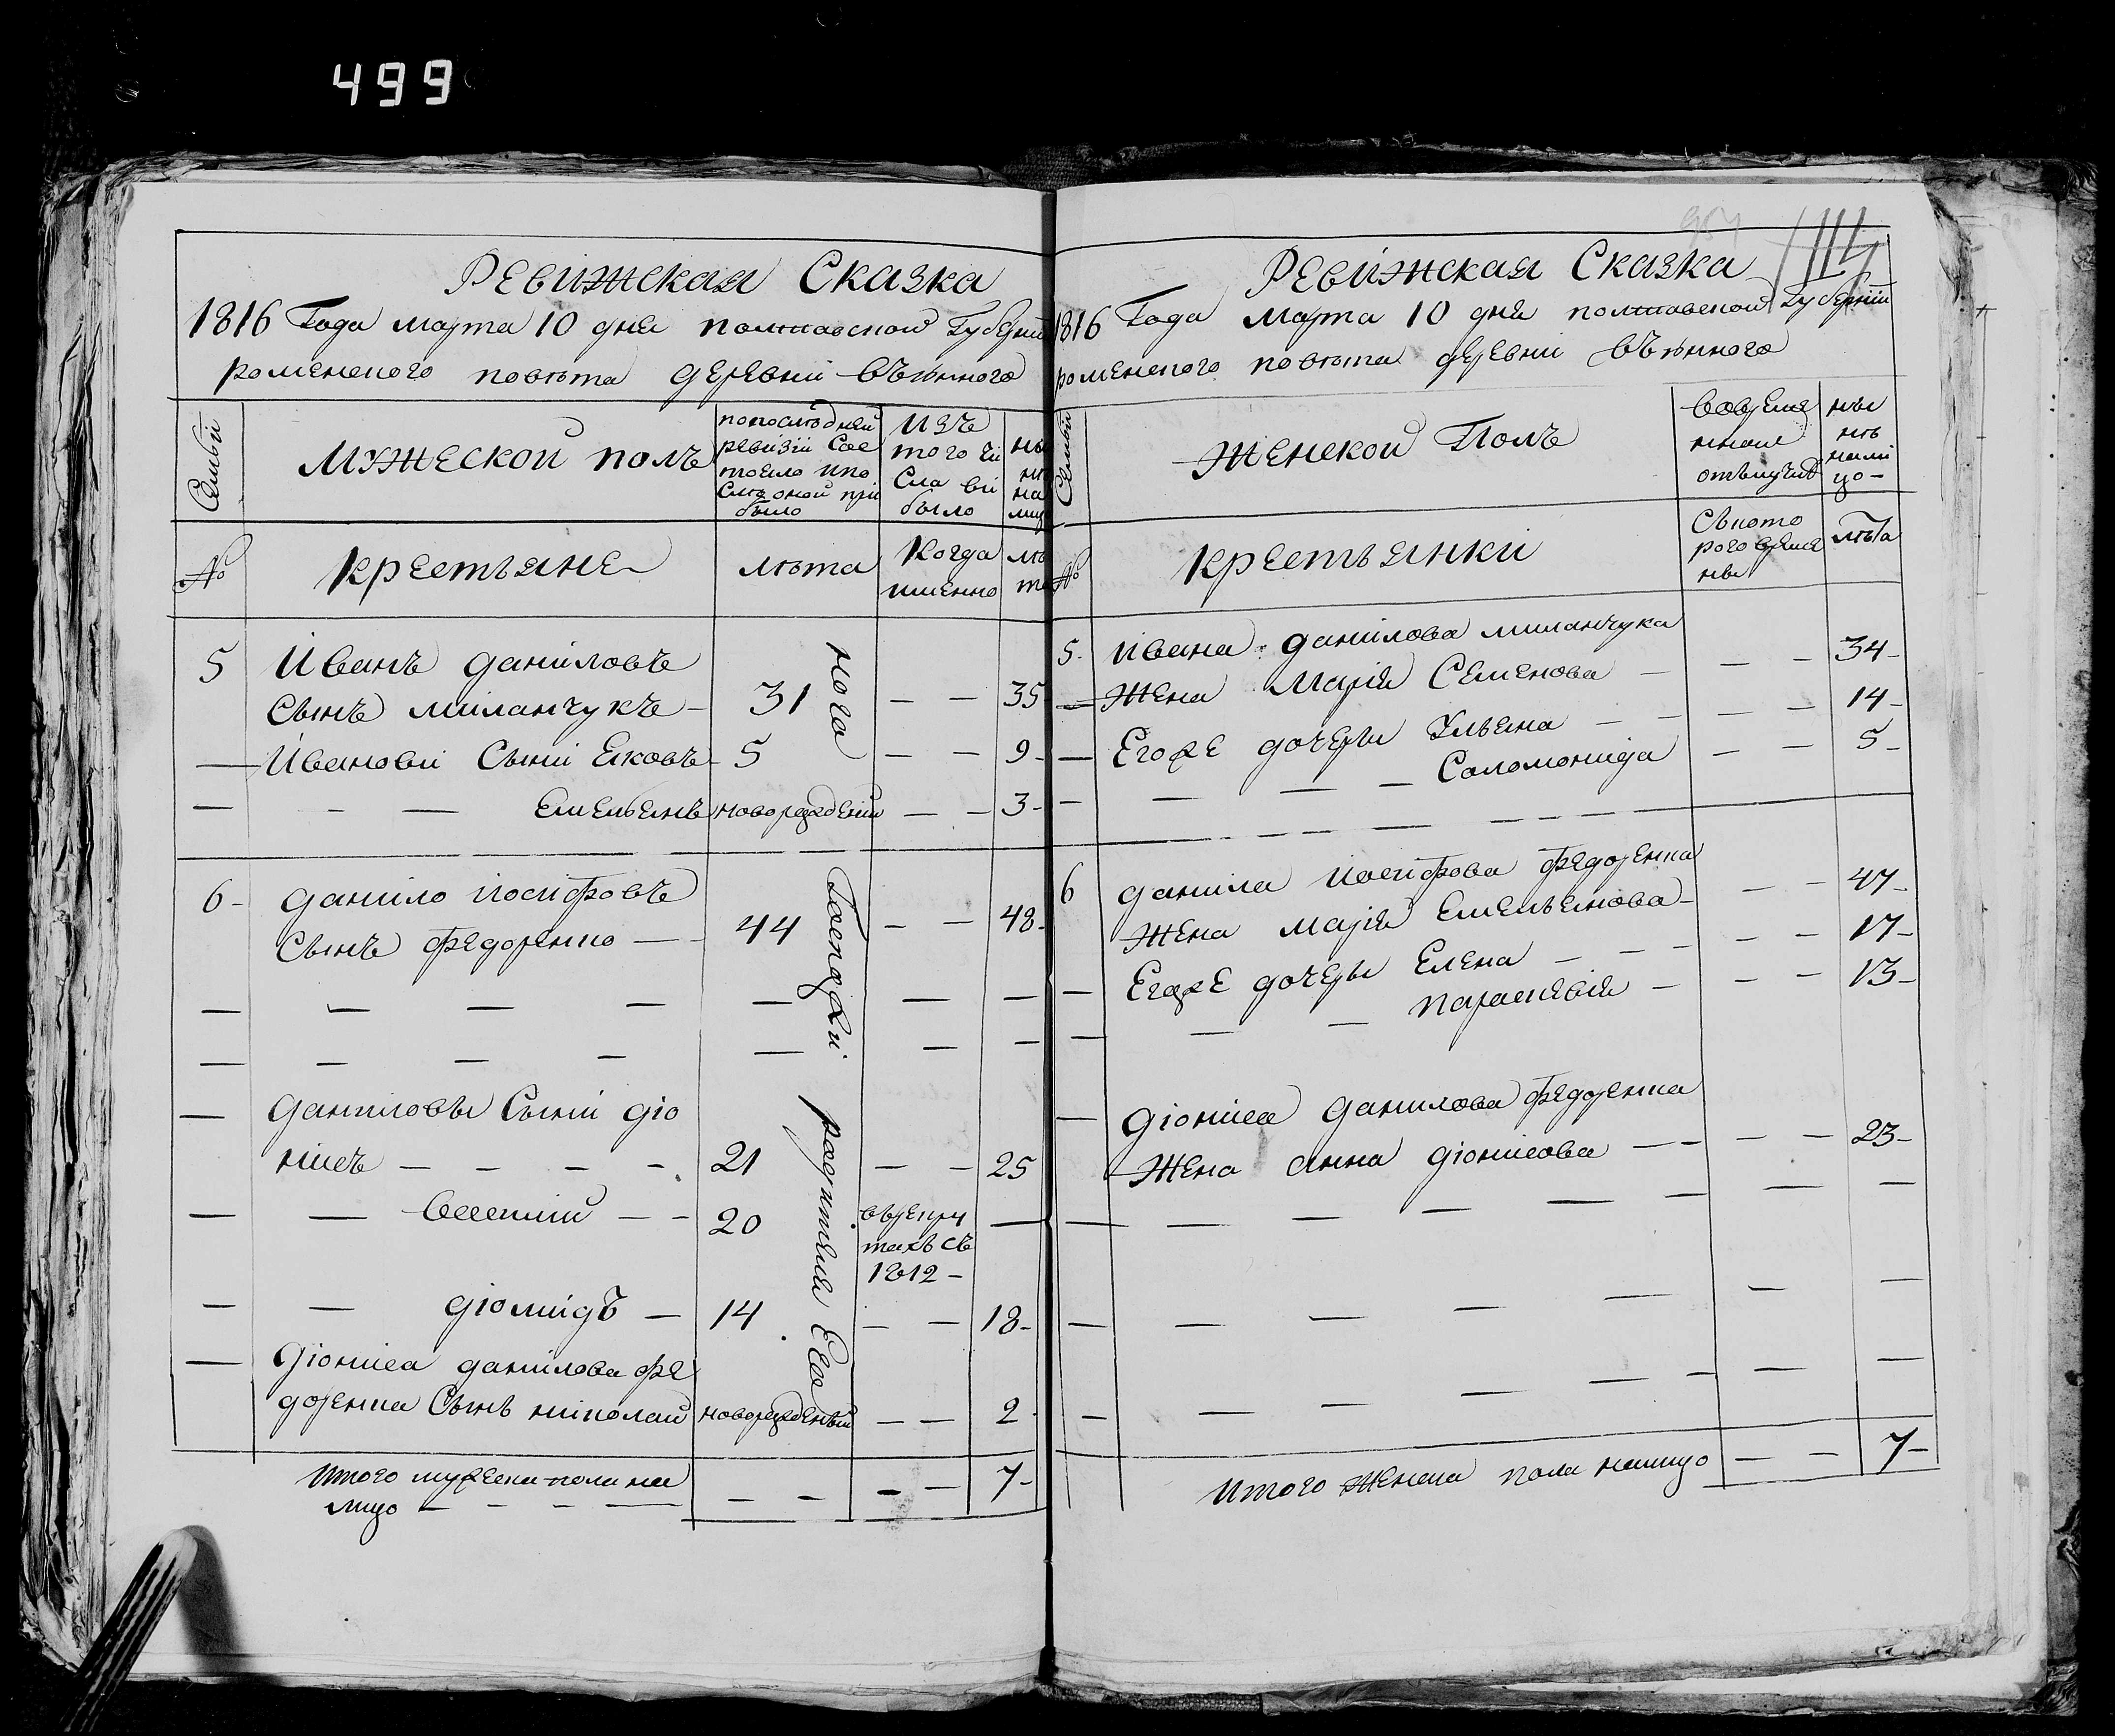 499
Ревижская Сказка
1816 Года марта 10 дня полтавской Губернии
роменского повѣта деревни
Семьи
Мужеской полъ
попослѣдней
ревизіи Сос
тояло ипо
слѣ оной при
было
Изъ
того чи
Сла вы
было
ны
нѣ
на
лицо
№
крестьяне
лѣта
Когда
именно
лѣ
та
5 Иванъ даниловъ
Сынъ миланчукъ - 31 - - 35
Ивановы Сыни Яковъ - 5 - - 9 -
Емельянъ новорожденій - - 3 -
6 - данило иосифовъ
Сынъ федоренко - - 44 - - 48 -
даниловы Сыни діо
нисъ - - - - 21 - - 25
Василий - - 20
врекру
тахъ съ
1812 -
діомидъ - 14 - - 18 -
діониса данилова фе
доренка Сынъ николай новорожденый - - 2 -
ного
Господжи
родители Его
Итого мужеска пола на
лицо - - - - - - - - 7 -
954
114
Ревижская Сказка
1816 Года марта 10 дня полтавской Губерніи
роменского повѣта деревни
Семьи
Женской Полъ
Вовреме
нной
отлучкѣ
ны
нѣ
нали
цо -
№
крестьянки
Съкото
рого време
ни
лѣта
5 - ивана данилова миланчука
Жена Марія Семенова - - - 34 -
Егоже дочеры Ульяна - - - - 14 -
Соломонида - - 5 -
6 данила иосифова федоренка
Жена Марія Емельянова - - - 47 -
Егоже дочеры Елена - - - - 17 -
параскевія - - - 13 -
діониса данилова федоренка
Жена Анна діонисова - - - - 23 -
Итого Женска пола налицо - - 7 -